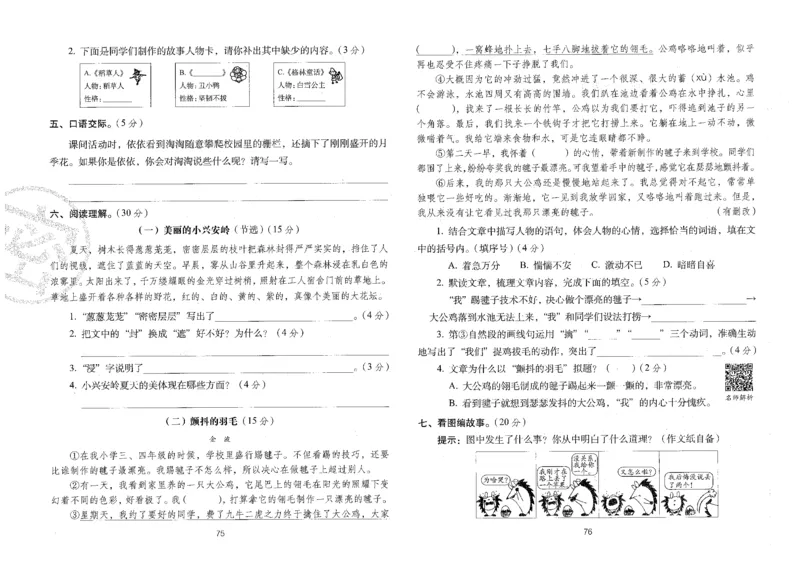 2. 下面是同学们制作的故事人物卡，请你补出其中缺少的内容。(3分)
A.《稻草人》
人物：稻草人
性格：
B.《 》
人物：丑小鸭
性格：坚韧不拔
C.《格林童话》
人物：白雪公主
性格：
五、口语交际。(5分)
课间活动时，依依看到淘淘随意攀爬校园里的栅栏，还摘下了刚刚盛开的月
季花。如果你是依依，你会对淘淘说些什么呢？请写一写。
六、阅读理解。(30分)
(一) 美丽的小兴安岭(节选)(15分)
夏天，树木长得葱葱茏茏，密密层层的枝叶把森林封得严严实实的，挡住了人
们的视线，遮住了蓝蓝的天空。早晨，雾从山谷里升起来，整个森林浸在乳白色的
浓雾里。太阳出来了，千万缕耀眼的金光穿过树梢，照射在工人宿舍门前的草地上。
草地上盛开着各种各样的野花，红的、白的、黄的、紫的，真像个美丽的大花坛。
1. “葱葱茏茏”“密密层层”写出了 。(4分)
2. 把文中的“封”换成“遮”好不好？为什么？(4分)
3. “浸”字说明了 。(3分)
4. 小兴安岭夏天的美体现在哪些方面？(4分)
(二) 颤抖的羽毛(15分)
金 波
①在我小学三、四年级的时候，学校里盛行踢毽子。不但看踢的技巧，还要
比谁制作的毽子最漂亮。我踢毽子不怎么样，所以决心在做毽子上超过别人。
②有一天，我看到家里养的一只大公鸡，它尾巴上的翎毛在阳光的照耀下变
幻着不同的色彩，好看极了。我( )，打算拿它的翎毛制作一只漂亮的毽子。
③星期天，我约了要好的同学，费了九牛二虎之力终于擒住了大公鸡，大家
75
( )，一窝蜂地扑上去，七手八脚地拔着它的翎毛。公鸡咯咯地叫着，似乎
再也忍受不住疼痛一下子挣脱了我们。
④大概因为它的冲劲过猛，竟然冲进了一个很深、很大的蓄(xù)水池。鸡
不会游泳，水池四周又有高高的围墙。我们趴在池边看着公鸡在水中挣扎，心里
( )，找来了一根长长的竹竿，公鸡以为我们要打它，吓得逃到池子的另一
个角落。最后，我们找来一个铁钩子才把它打捞上来。它躺在地上一动不动，微
微喘着气。我给它端来食物和水，可是它连眼睛都不睁。
⑤第二天一早，我怀着( )的心情，带着新制作的毽子来到学校。同学们
都围了上来，纷纷夸奖我的毽子最漂亮。可我望着手中的毽子，感觉它在瑟瑟地颤抖着。
⑥后来，我的那只大公鸡还是慢慢地站起来了。我总觉得对不起它，常常单
独喂它一些好吃的。渐渐地，它一见到我放学回家，又咯咯地叫着跑过来。但是，
我从来没有让它看见过我那只漂亮的毽子。 (有删改)
1. 结合文章中描写人物的语句，体会人物的心情，选择恰当的词语，填在文
中的括号内。(填序号)(4分)
A. 着急万分 B. 惴惴不安 C. 激动不已 D. 暗暗自喜
2. 默读文章，梳理文章内容，完成下面的填空。(5分)
“我”踢毽子技术不好，决心做个漂亮的毽子→ →
大公鸡落到水池无法上来，“我”和同学们设法打捞→
3. 第③自然段的画线句运用“擒”“ ”“ ”三个动词，准确生动
地写出了“我们”捉鸡拔毛的动作，突出了 。(4分)
4. 文章为什么以“颤抖的羽毛”拟题？( )(2分)
A. 大公鸡的翎毛制成的毽子踢起来一颤一颤的，非常漂亮。
B. 看到毽子就想到瑟瑟发抖的大公鸡，“我”的内心十分愧疚。
名师解析
七、看图编故事。(20分)
提示：图中发生了什么事？你从中明白了什么道理？(作文纸自备)
为啥哭？
我刚才在路上丢了一个苹果
没关系，我给你一个。
又怎么啦？
我后悔没说丢了两个！
76